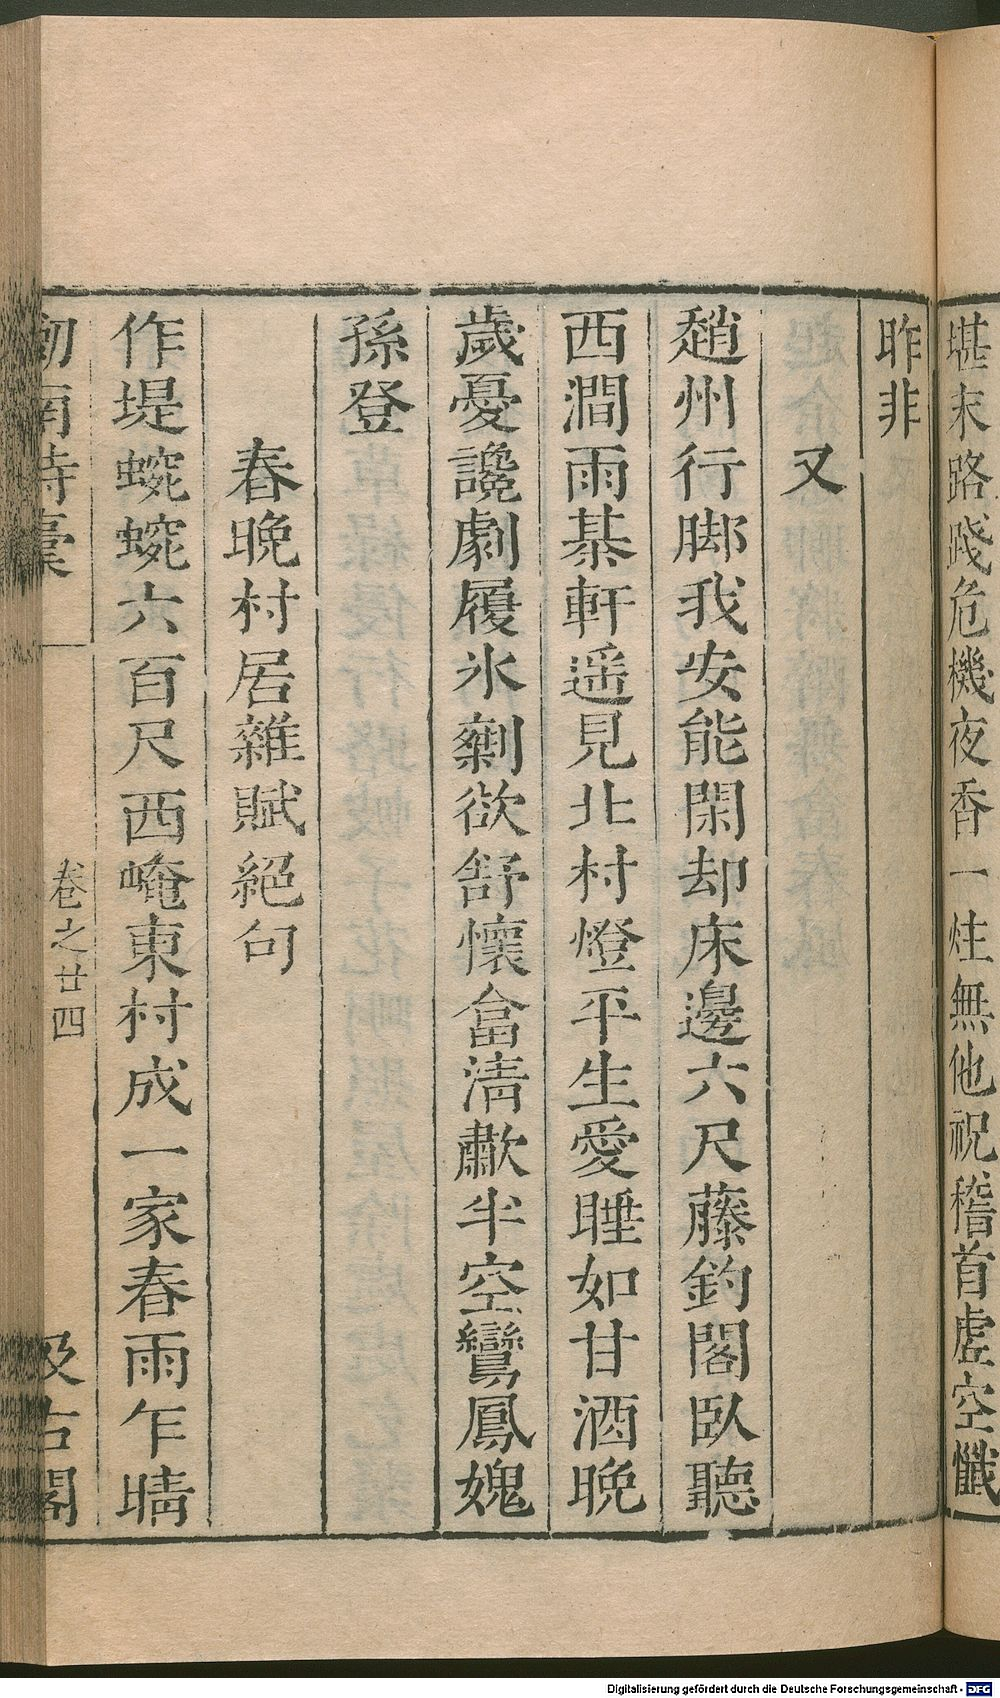 堪末路踐危機夜香一炷無他祝稽首虛空懺
昨非
又
趙州行脚我安能閑却床邊六尺藤釣閣臥聽
西澗雨棊軒遥見北村燈平生愛睡如甘酒晚
歲憂讒劇履氷剩欲舒懷畣清歗半空鸞鳳媿
孫登
春晚村居雜賦絕句
作堤蜿蜿六百尺西崦東村成一家春雨乍晴
劒南詩稾
卷之廿四
汲古閣
Digitalisierung gefördert durch die Deutsche Forschungsgemeinschaft - DFG